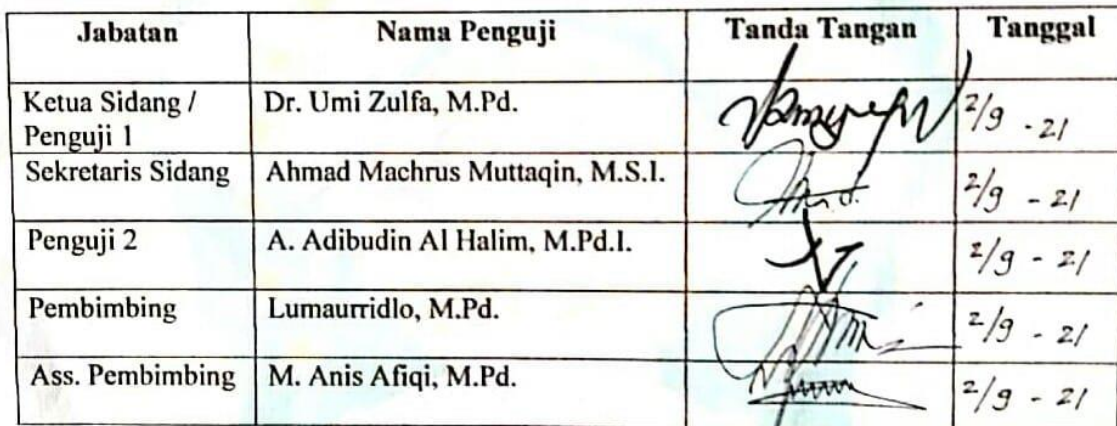 Jabatan Nama Penguji Tanda Tangan Tanggal
Ketua Sidang / Dr. Umi Zulfa, M.Pd. 2/9 - 21
Penguji 1
Sekretaris Sidang Ahmad Machrus Muttaqin, M.S.I. 2/9 - 21
Penguji 2 A. Adibudin Al Halim, M.Pd.I. 2/9 - 21
Pembimbing Lumaurridlo, M.Pd. 2/9 - 21
Ass. Pembimbing M. Anis Afiqi, M.Pd. 2/9 - 21